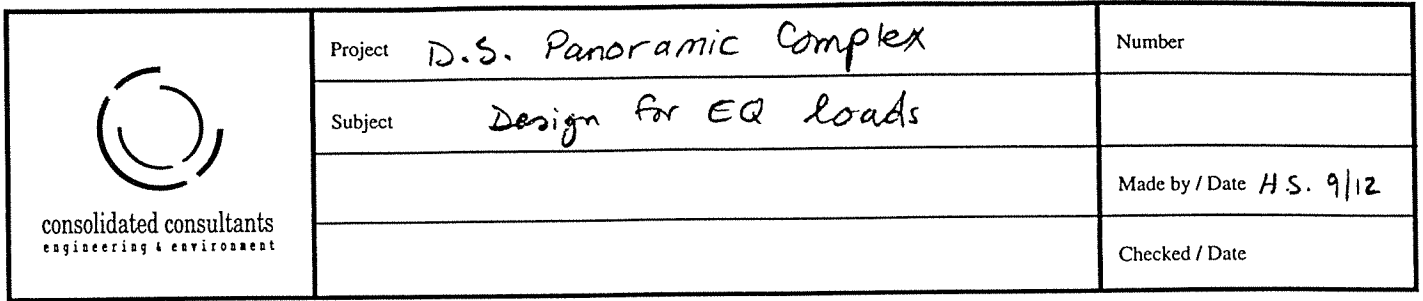 consolidated consultants
engineering & environment
Project D.S. Panoramic Complex
Number
Subject Design for EQ loads
Made by / Date H.S. 9/12
Checked / Date